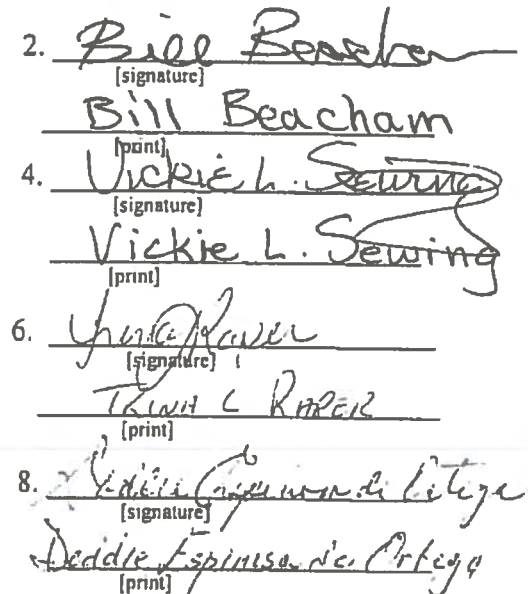 2. Bill Beacham
[signature]
Bill Beacham
[print]
4. Vickie L. Sewing
[signature]
Vickie L. Sewing
[print]
6. Trina Raper
[signature]
TRINA L RAPER
[print]
8. Ortega
[signature]
Deddie Espinosa de Ortega
[print]